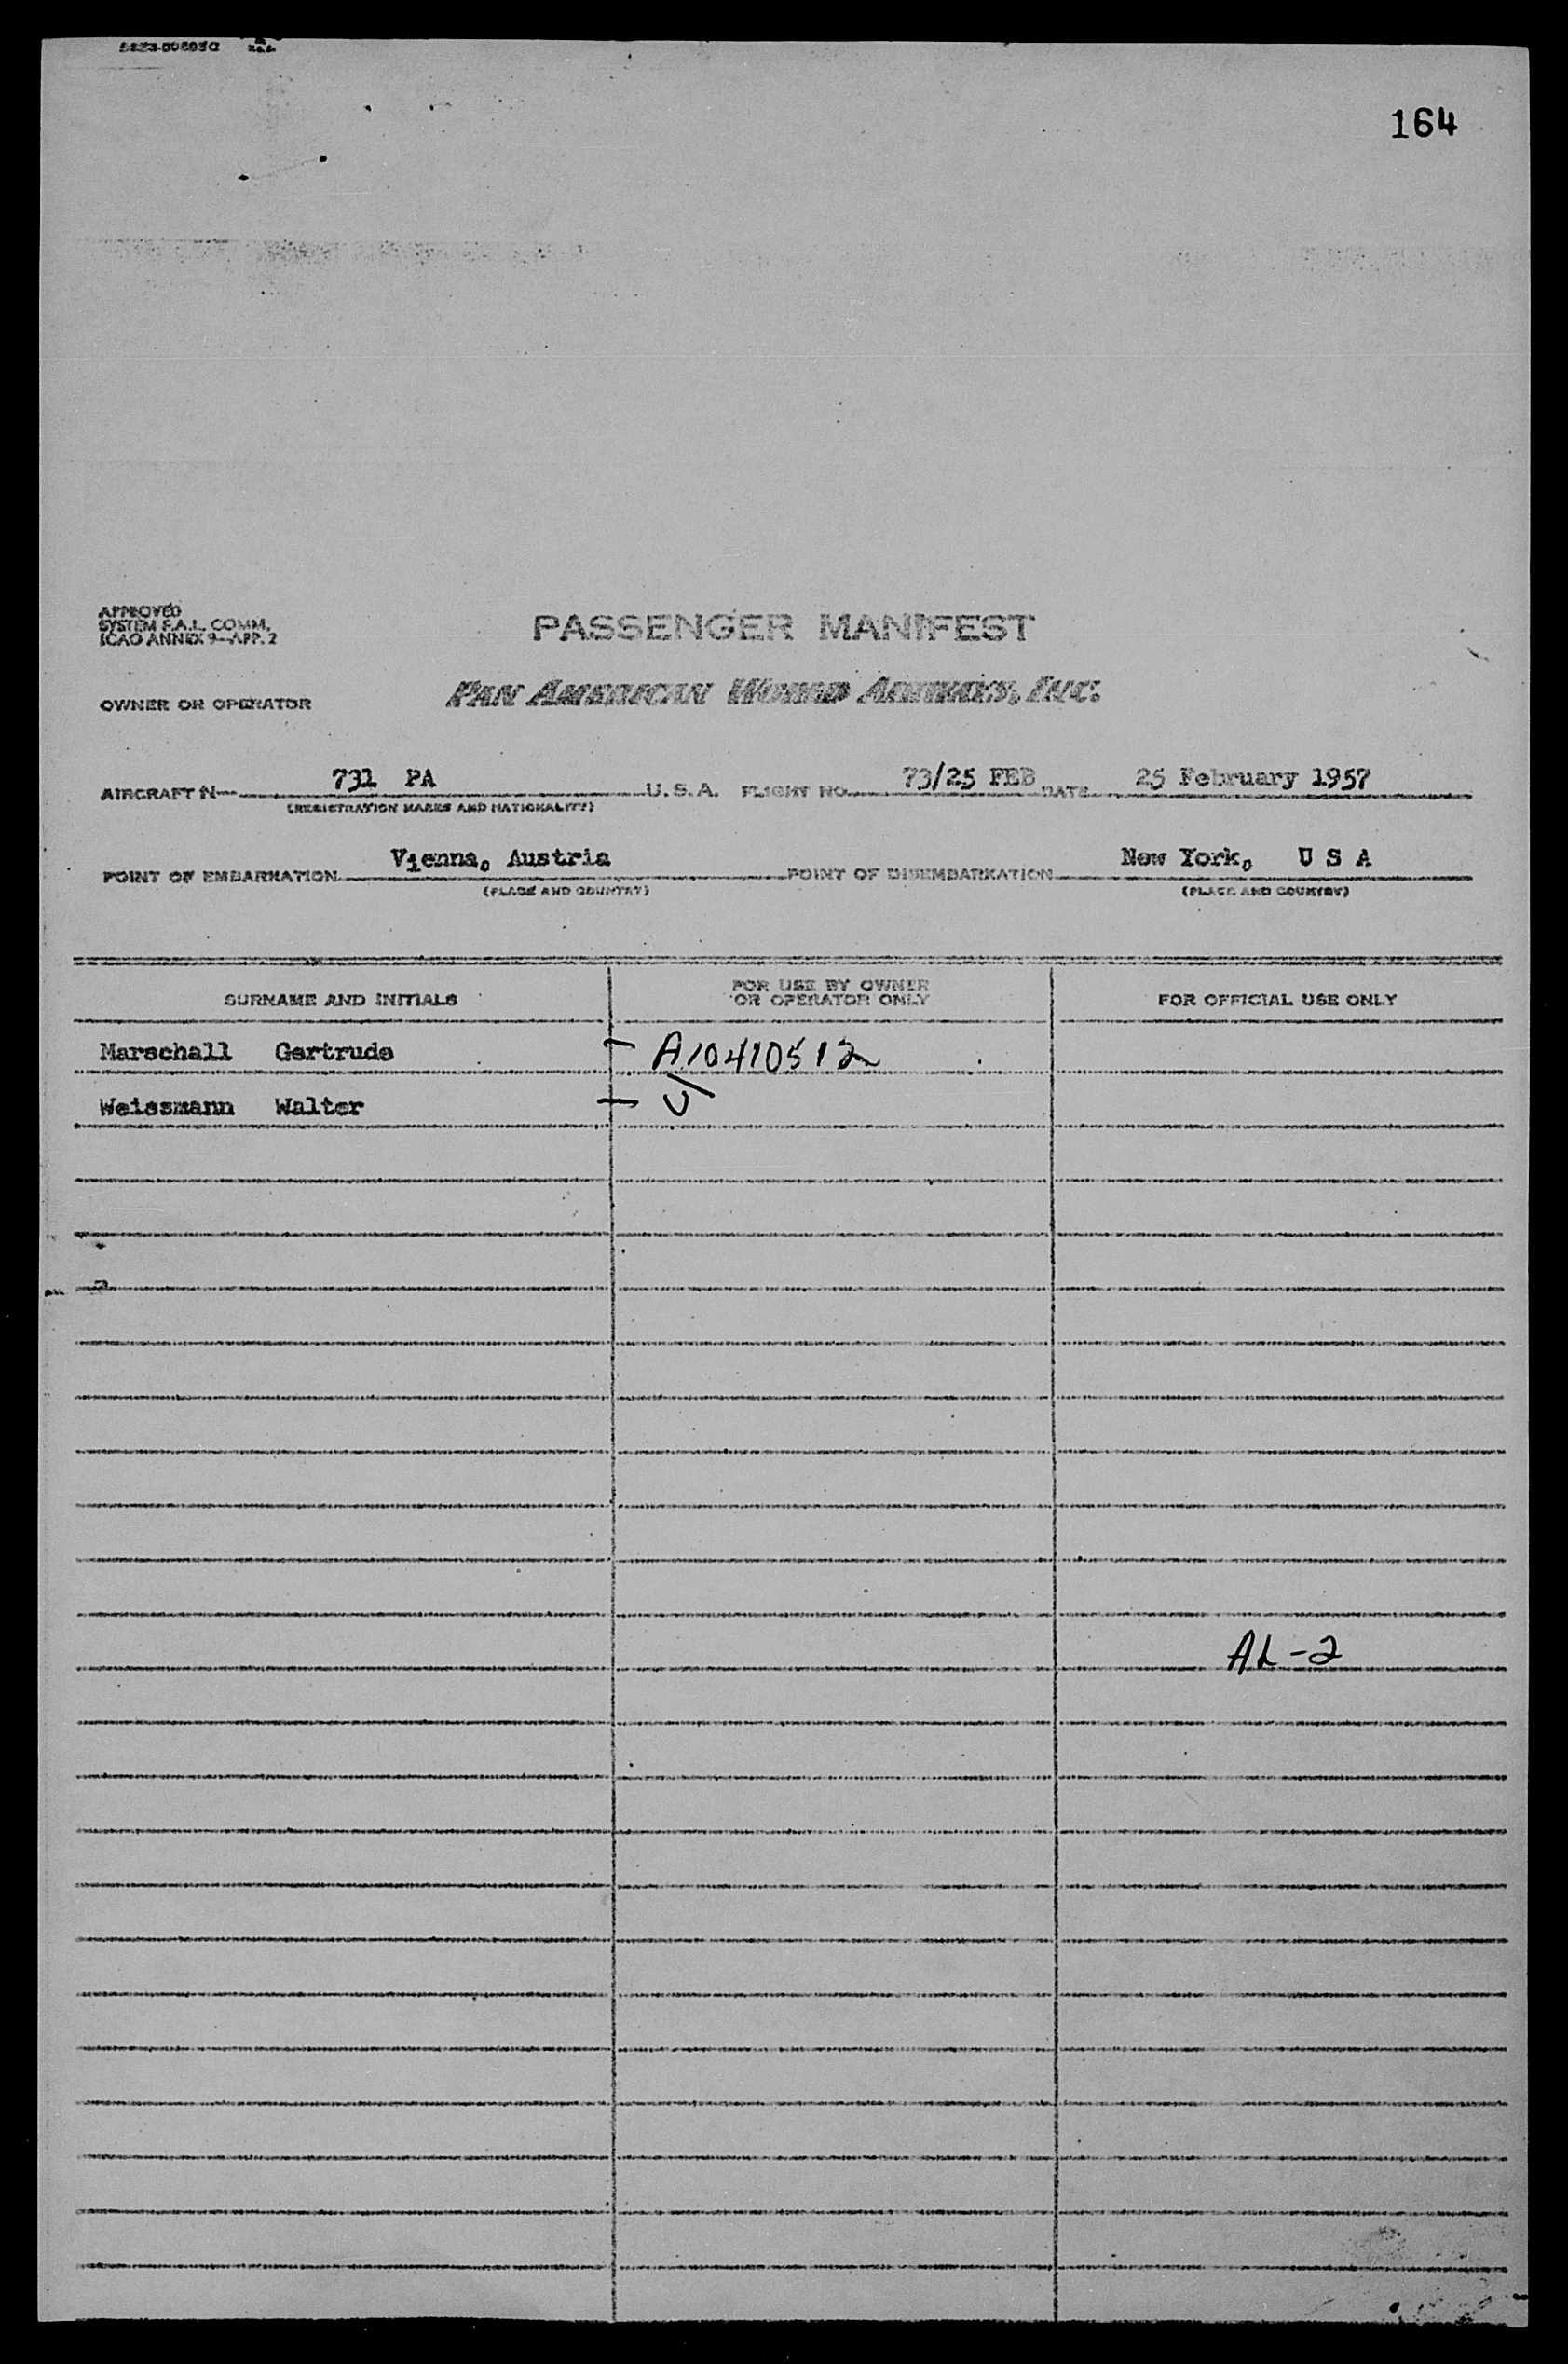 164
APPROVED
SYSTEM F.A.L. COMM.
ICAO ANNEX 9—APP. 2
PASSENGER MANIFEST
OWNER OR OPERATOR PAN AMERICAN WORLD AIRWAYS, INC.
AIRCRAFT N— 731 PA U. S. A. FLIGHT NO. 73/25 FEB DATE 25 February 1957
(REGISTRATION MARKS AND NATIONALITY)
POINT OF EMBARKATION Vienna, Austria POINT OF DISEMBARKATION New York, U S A
(PLACE AND COUNTRY) (PLACE AND COUNTRY)
SURNAME AND INITIALS FOR USE BY OWNER OR OPERATOR ONLY FOR OFFICIAL USE ONLY
Marschall Gertrude - A10410512
Weissmann Walter -
AL-2